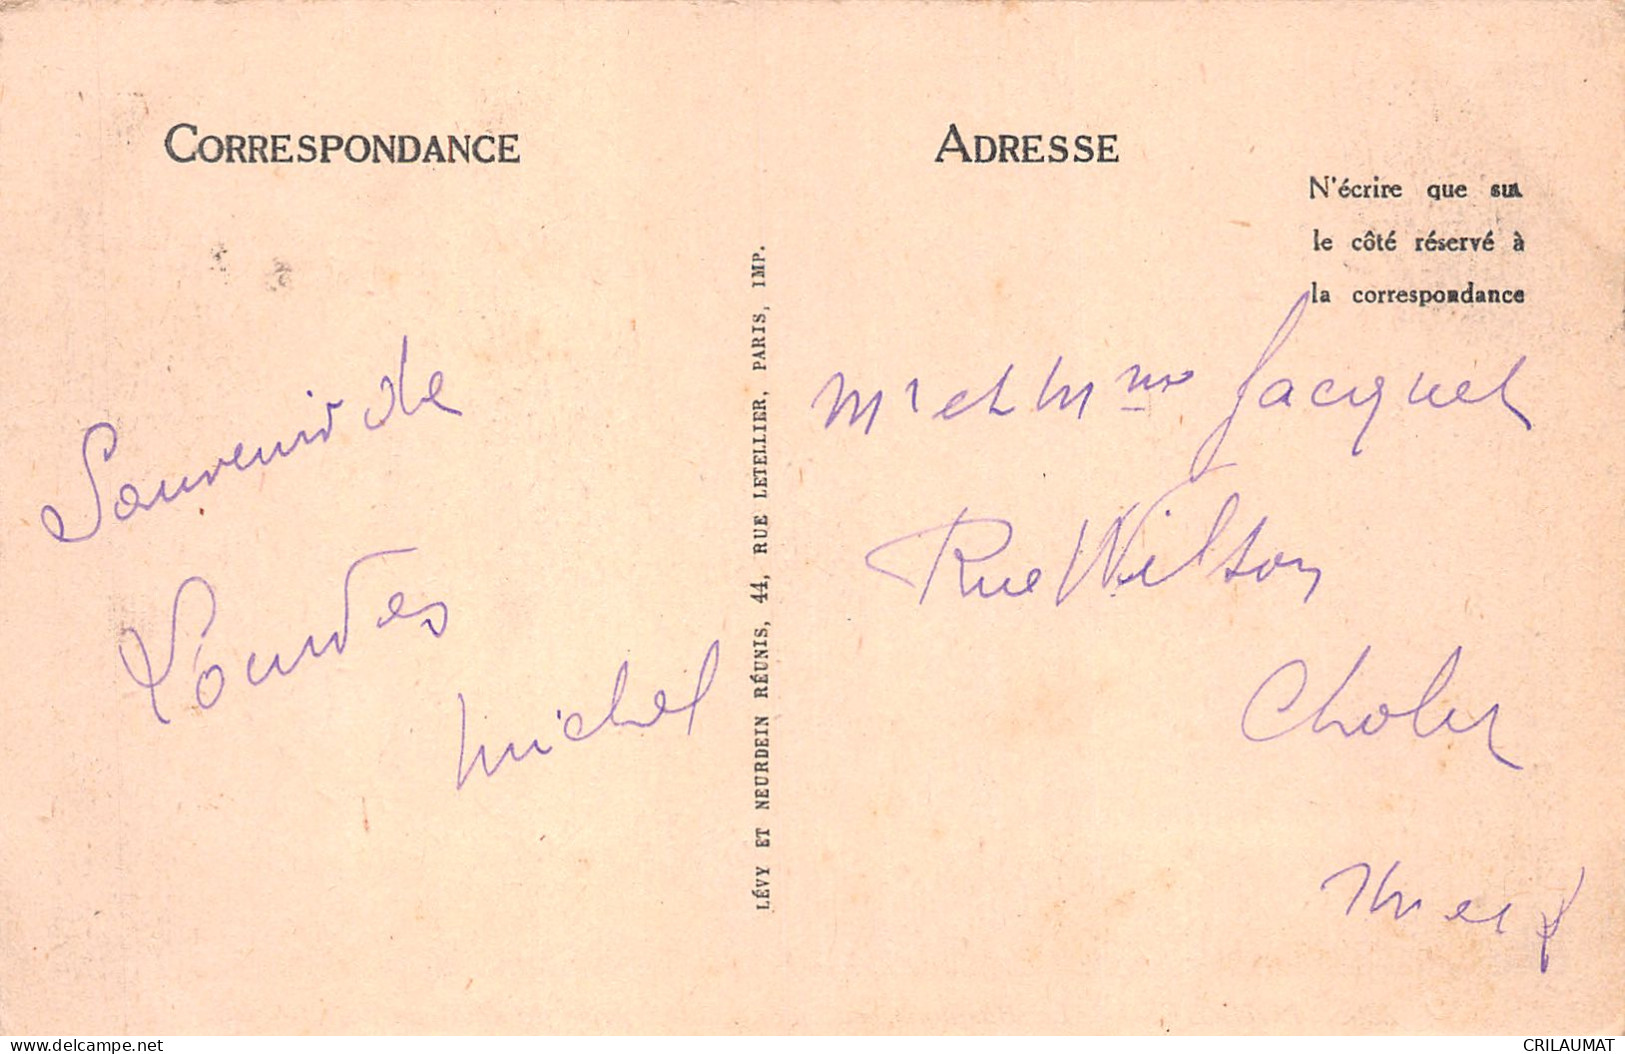 CORRESPONDANCE
Souvenir de
Lourdes
Michel
LÉVY ET NEURDEIN RÉUNIS, 44, RUE LETELLIER, PARIS, IMP.
ADRESSE
N'écrire que sur
le côté réservé à
la correspondance
Mr et Mme Jacquet
Rue Wilson
Cholet
delcampe.net
CRILAUMAT